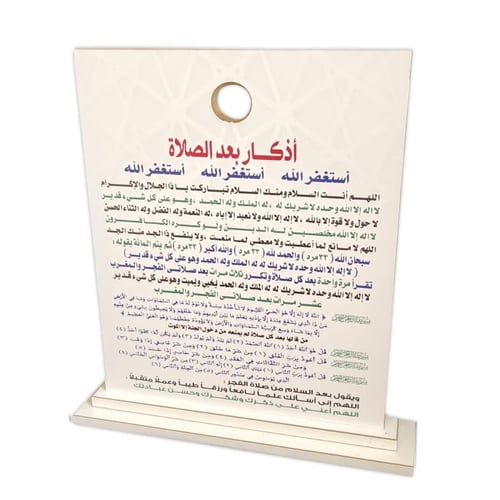 أذكار بعد الصلاة
أستغفر الله أستغفر الله أستغفر الله
اللهم أنت السلام ومنك السلام تباركت يا ذا الجلال والإكرام
لا اله إلا الله وحده لا شريك له ، له الملك وله الحمد ، وهو على كل شيء قدير
لا حول ولا قوة إلا بالله ، لا إله إلا الله ولا نعبد إلا إياه ، له النعمة وله الفضل وله الثناء الحسن
لا إله إلا الله مخلصين له الدين ولو كره الكافرون
اللهم لا مانع لما أعطيت ولا معطي لما منعت ، ولا ينفع ذا الجد منك الجد
سبحان الله (٣٣مرة) والحمد لله (٣٣مرة) والله أكبر (٣٣مرة) ثم يتم المائة بقوله :
( لا إله إلا الله وحده لا شريك له له الملك وله الحمد وهو على كل شيء قدير )
تقرأ مرة واحدة بعد كل صلاة وتكرر ثلاث مرات بعد صلاتي الفجر والمغرب
لا إله إلا الله وحده لا شريك له له الملك وله الحمد يحيي ويميت وهو على كل شيء قدير
عشر مرات بعد صلاتي الفجر والمغرب
من قالها بعد كل صلاة لم يمنعه من دخول الجنة إلا الموت
ويقول بعد السلام من صلاة الفجر :
اللهم إني أسألك علماً نافعاً ورزقاً طيباً وعملاً متقبلاً .
اللهم أعني على ذكرك وشكرك وحسن عبادتك